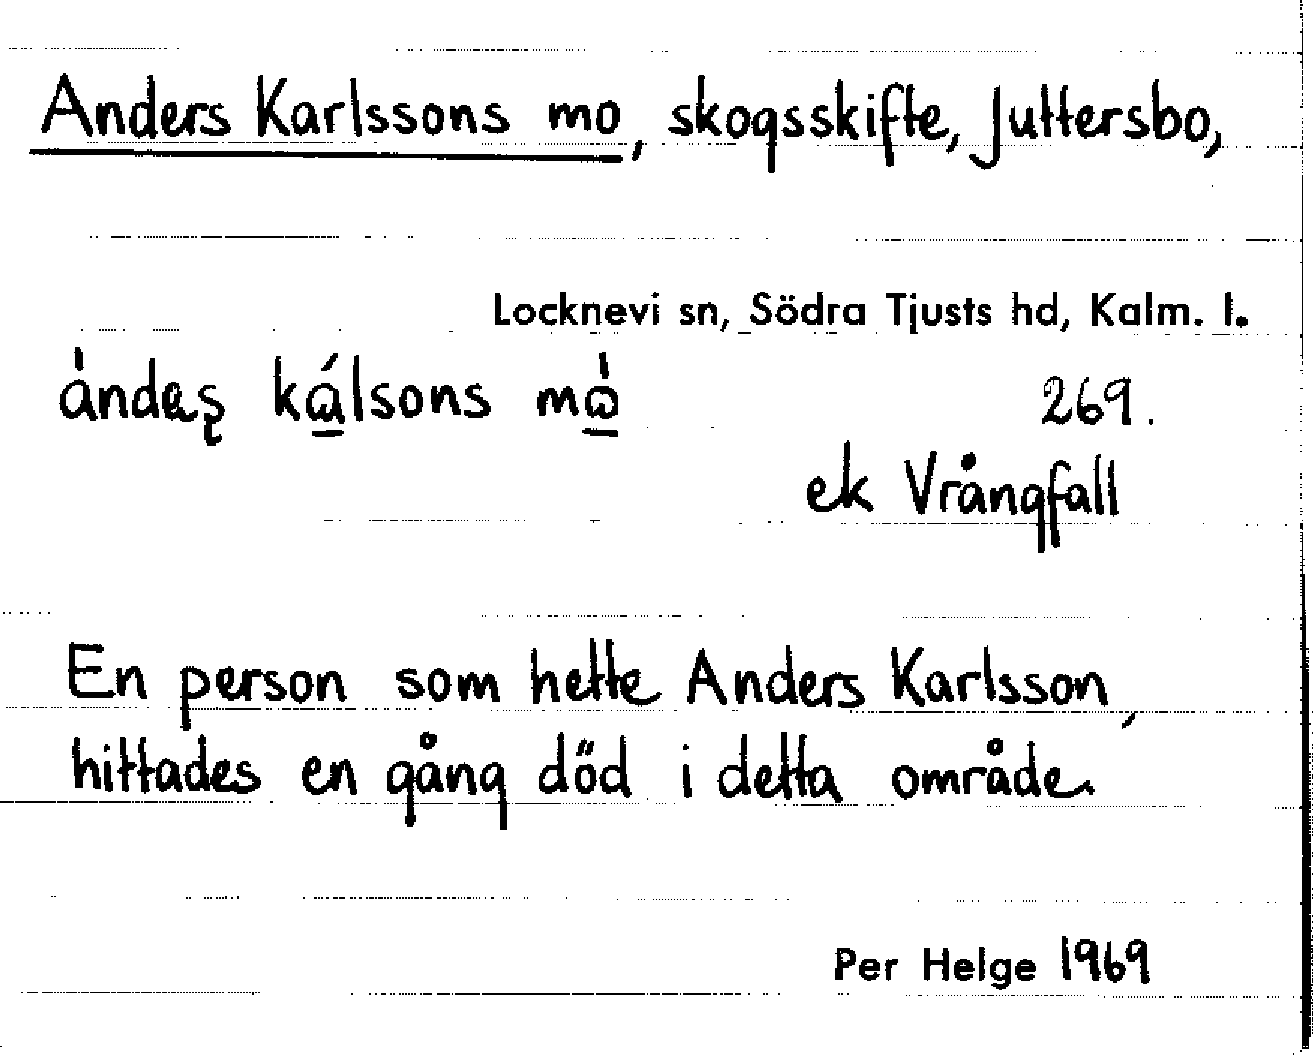 Anders Karlssons mo, skogsskifte, Juttersbo,
Locknevi sn, Södra Tjusts hd, Kalm. l.
ȧndas̨ ká̱lsons mȯ̱
269.
ek Vrångfall
En person som hette Anders Karlsson,
hittades en gång död i detta område.
Per Helge 1969